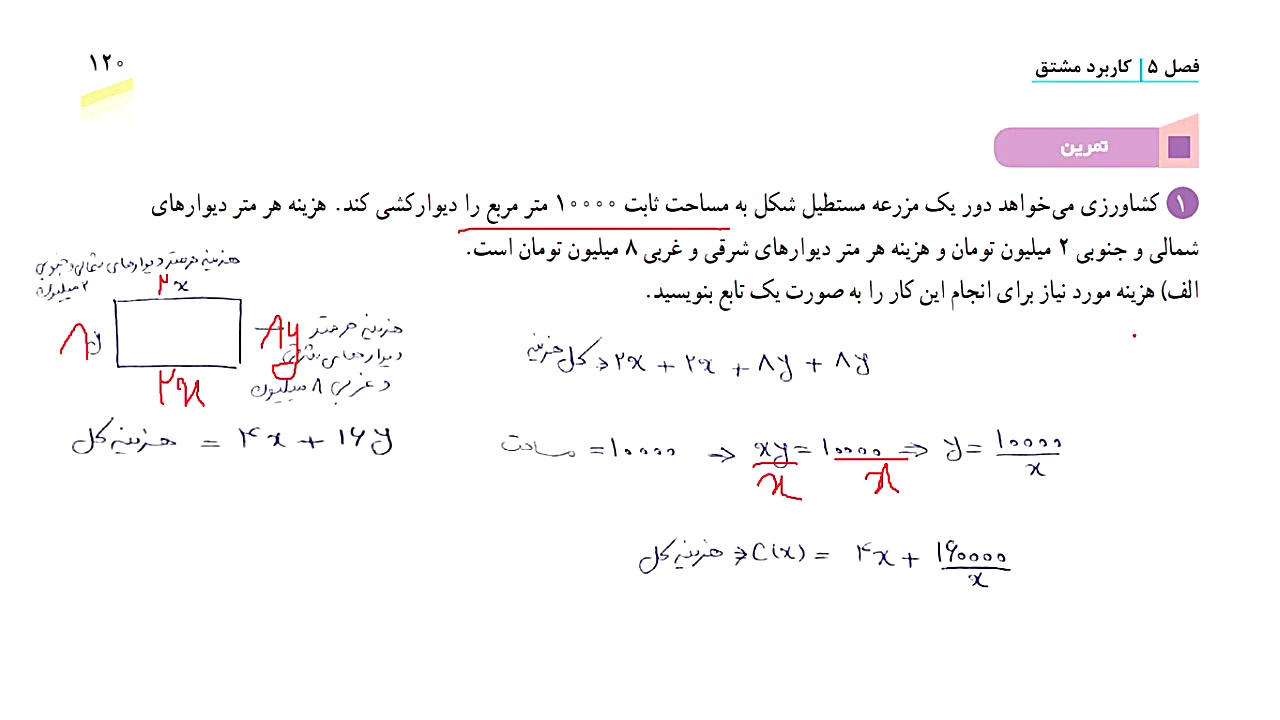 فصل ۵ | کاربرد مشتق
۱۲۰
تمرین
۱ کشاورزی می‌خواهد دور یک مزرعه مستطیل شکل به مساحت ثابت ۱۰۰۰۰ متر مربع را دیوارکشی کند. هزینه هر متر دیوارهای
شمالی و جنوبی ۲ میلیون تومان و هزینه هر متر دیوارهای شرقی و غربی ۸ میلیون تومان است.
الف) هزینه مورد نیاز برای انجام این کار را به صورت یک تابع بنویسید.
هزینه هر متر دیوارهای شمالی و جنوبی
۲ میلیون
۲x
۸y
۸y
هزینه هر متر
دیوارهای شرقی
و غربی ۸ میلیون
۲x
کل هزینه = ۲x + ۲x + ۸y + ۸y
هزینه کل = ۴x + ۱۶y
مساحت = ۱۰۰۰۰ → xy = ۱۰۰۰۰ ⇒ y = ۱۰۰۰۰/x
x x
هزینه کل ⇒ C(x) = ۴x + ۱۶۰۰۰۰/x